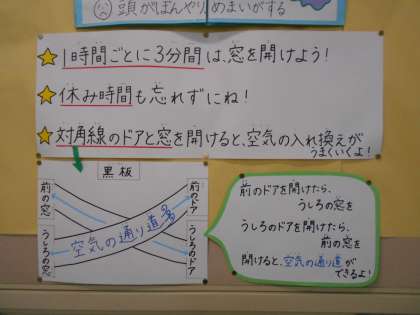 頭がぼんやり、めまいがする
1時間ごとに3分間は、窓を開けよう!
休み時間も忘れずにね!
対角線のドアと窓を開けると、空気の入れ換えが
うまくいくよ!
黒板
前の窓
前のドア
空気の通り道
うしろの窓
うしろのドア
前のドアを開けたら、
うしろの窓を
うしろのドアを開けたら、
前の窓を
開けると、空気の通り道が
できるよ!